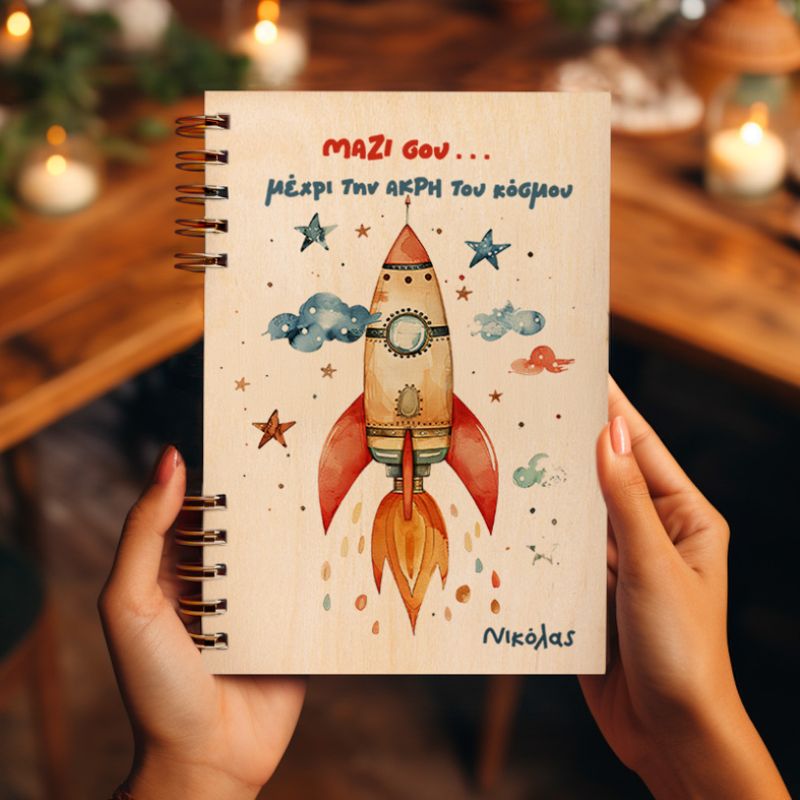 ΜΑΖΙ σου...
μέχρι την ΑΚΡΗ του κόσμου
Νικόλας